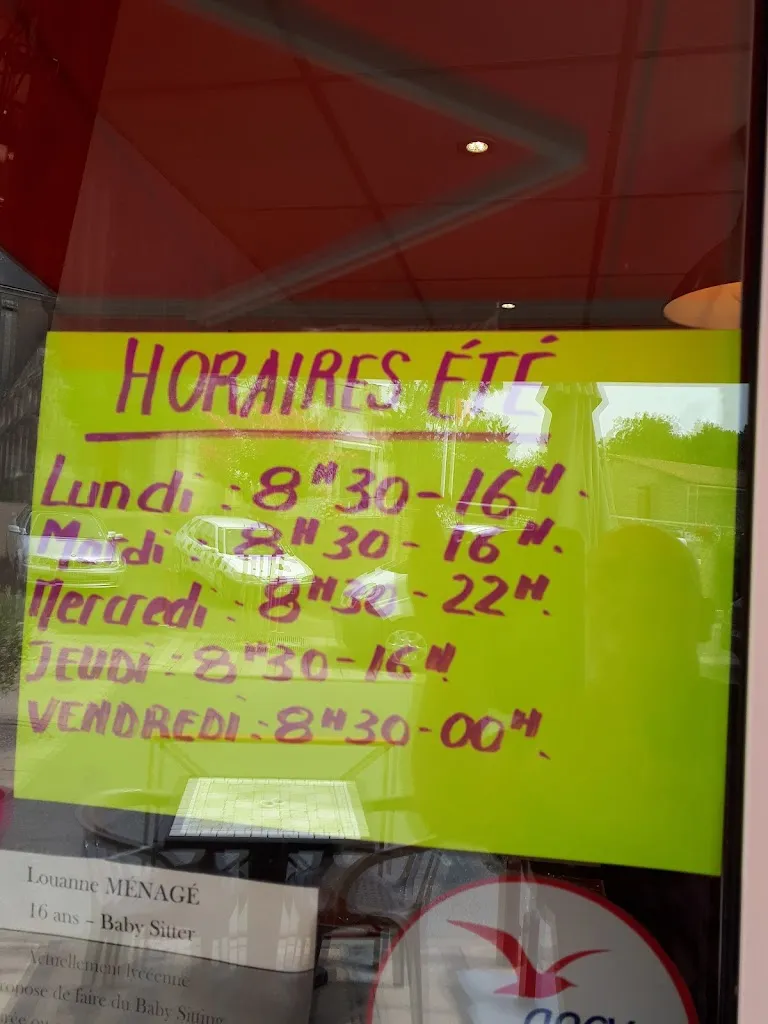 HORAIRES ÉTÉ
Lundi : 8H30 - 16H.
Mardi : 8H30 - 16H.
Mercredi : 8H30 - 22H.
JEUDI : 8H30 - 16H
VENDREDI : 8H30 - 00H.
Louanne MÉNAGÉ
16 ans – Baby Sitter
Actuellement lycéenne
ropose de faire du Baby Sitting